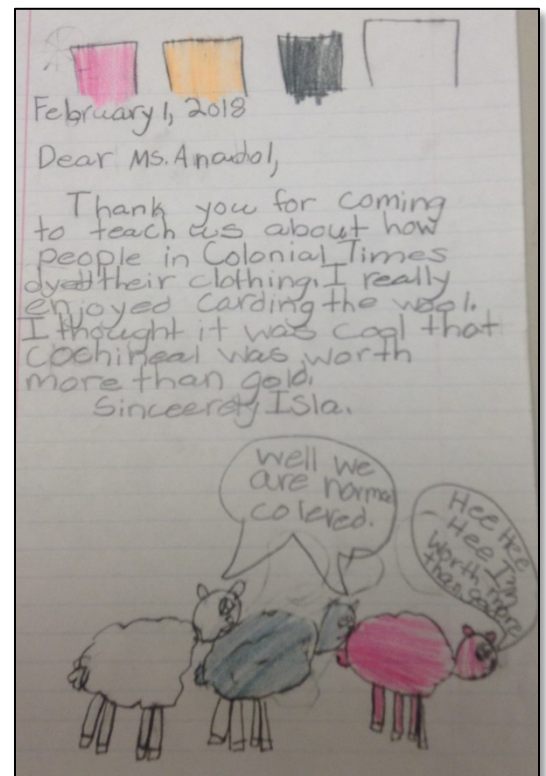 February 1, 2018
Dear Ms. Anadol,
Thank you for coming
to teach us about how
people in Colonial Times
dyed their clothing. I really
enjoyed carding the wool.
I thought it was cool that
cochineal was worth
more than gold.
Sincerety Isla.
well we
are normal
colered.
Hee Hee
Hee I'm
worth more
than